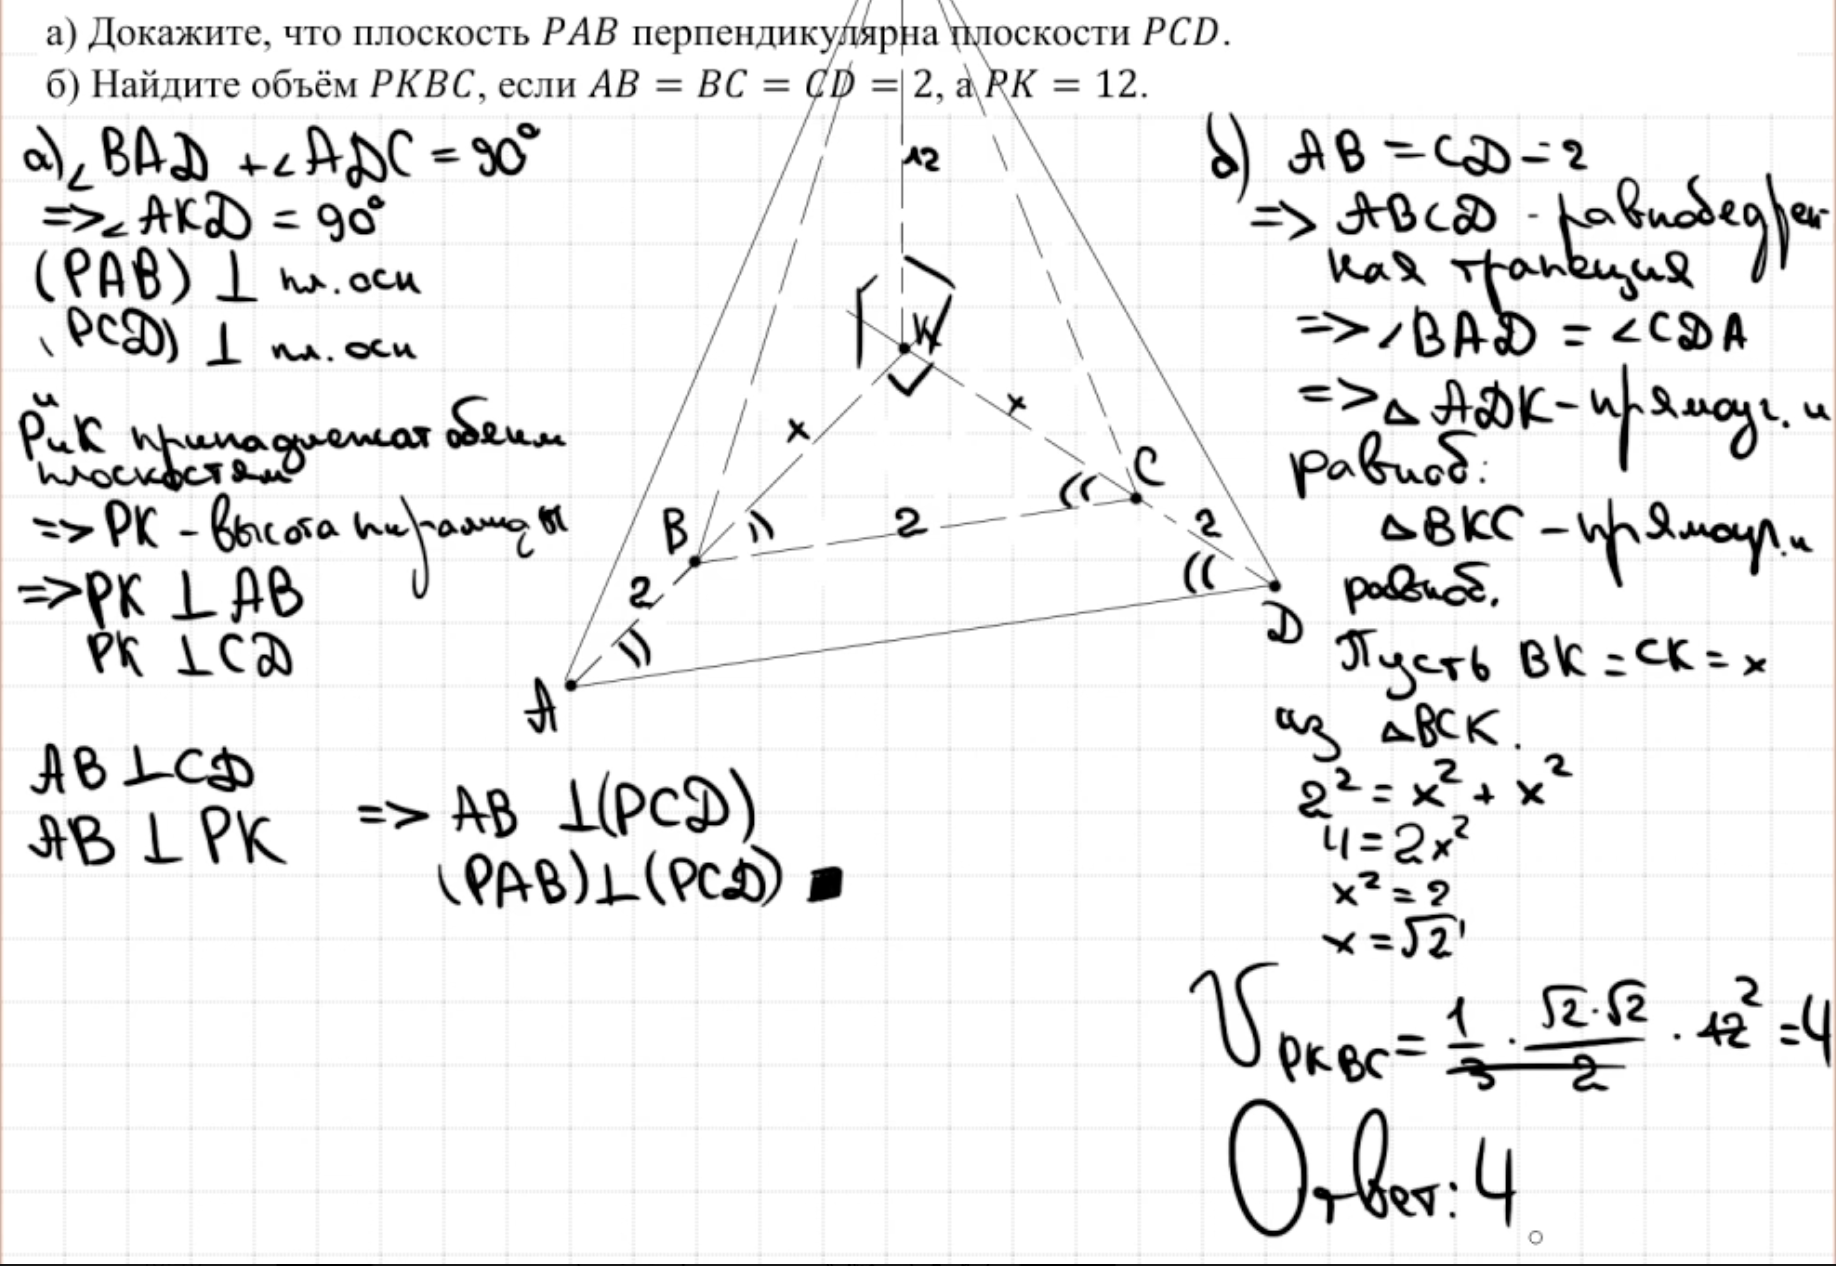 а) Докажите, что плоскость PAB перпендикулярна плоскости PCD.
б) Найдите объём PKBC, если AB = BC = CD = 2, а PK = 12.
а) ∠BAD + ∠ADC = 90°
=> ∠AKD = 90°
(PAB) ⊥ пл. осн
(PCD) ⊥ пл. осн
P и K принадлежат обеим
плоскостям
=> PK - высота пирамиды
=> PK ⊥ AB
PK ⊥ CD
AB ⊥ CD
AB ⊥ PK => AB ⊥ (PCD)
(PAB) ⊥ (PCD) ■
12
K
x
x
B
C
2
2
2
A
D
б) AB = CD = 2
=> ABCD - равнобедрен-
ная трапеция
=> ∠BAD = ∠CDA
=> △ADK - прямоуг. и
равноб:
△BKC - прямоуг. и
равноб.
Пусть BK = CK = x
из △BCK.
2² = x² + x²
4 = 2x²
x² = 2
x = √2
V PKBC = 1/3 · √2·√2/2 · 12 2 = 4
Ответ: 4